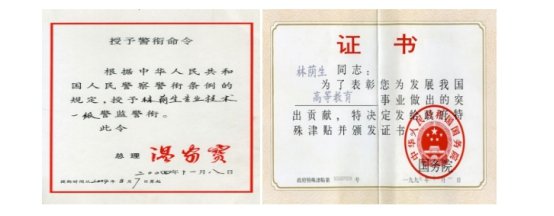 授予警衔命令
根据中华人民共和
国人民警察警衔条例的
规定，授予林荫生专业技术
一级警监警衔。
此令
总理 温家宝
二〇〇四年十一月八日
证书
林荫生 同志：
为了表彰您为发展我国
高等教育 事业做出的突
出贡献，特决定发给政府特
殊津贴并颁发证书。
中华人民共和国国务院
国务院